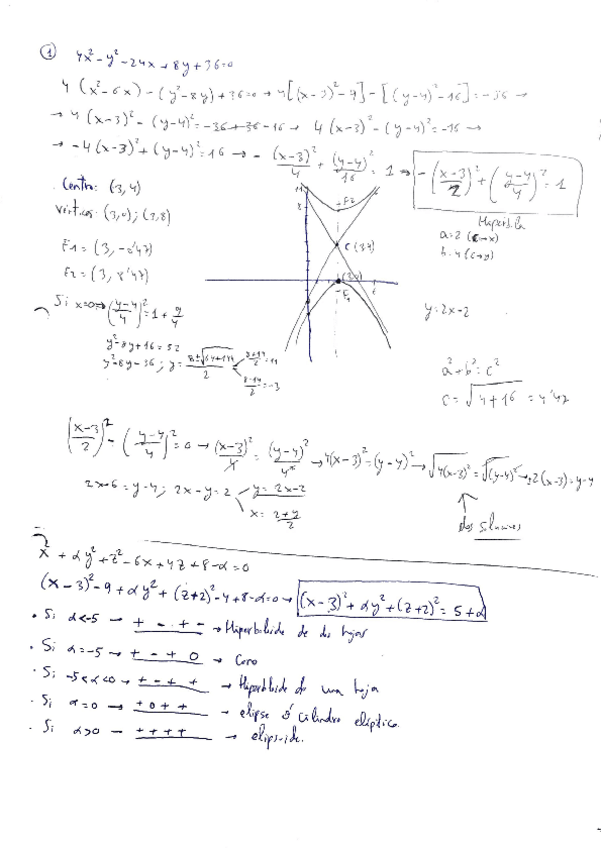 ① 4x² - y² - 24x + 8y + 36 = 0
4 (x² - 6x) - (y² - 8y) + 36 = 0 → 4[(x-3)² - 9] - [(y-4)² - 16] = -36 →
→ 4 (x-3)² - (y-4)² = -36 + 36 - 16 → 4 (x-3)² - (y-4)² = -16 →
→ -4 (x-3)² + (y-4)² = 16 → - (x-3)²/4 + (y-4)²/16 = 1 → -(x-3/2)² + (y-4/4)² = 1
Centro: (3,4)
(3,0); (3,8)
F1 = (3, -0'47)
F2 = (3, 8'47)
Si x=0 → (y-4/4)² = 1 + 9/4
y² - 8y + 16 = 52
y² - 8y - 36; y = 8 ± √64+144 / 2
F2
C (3,4)
F1
Hipérbola
a = 2 (→x)
b = 4 (→y)
y = 2x - 2
a² + b² = c²
c = √4 + 16 = 4'47
(x-3/2)² - (y-4/4)² = 0 → (x-3)²/4 = (y-4)²/16 → 4(x-3)² = (y-4)² → √4(x-3)² = √(y-4)² → 2(x-3) = y-4
2x - 6 = y - 4; 2x - y = 2
y = 2x - 2
x = 2+y/2
dos soluciones
x² + αy² + z² - 6x + 4z + 8 - α = 0
(x-3)² - 9 + αy² + (z+2)² - 4 + 8 - α = 0 → (x-3)² + αy² + (z+2)² = 5 + α
· Si α < -5 → + - + - → Hiperboloide de dos hojas
· Si α = -5 → + - + 0 → Cono
· Si -5 < α < 0 → + - + + → Hiperboloide de una hoja
· Si α = 0 → + 0 + + → elipse ó cilindro elíptico.
· Si α > 0 → + + + + → elipsoide.